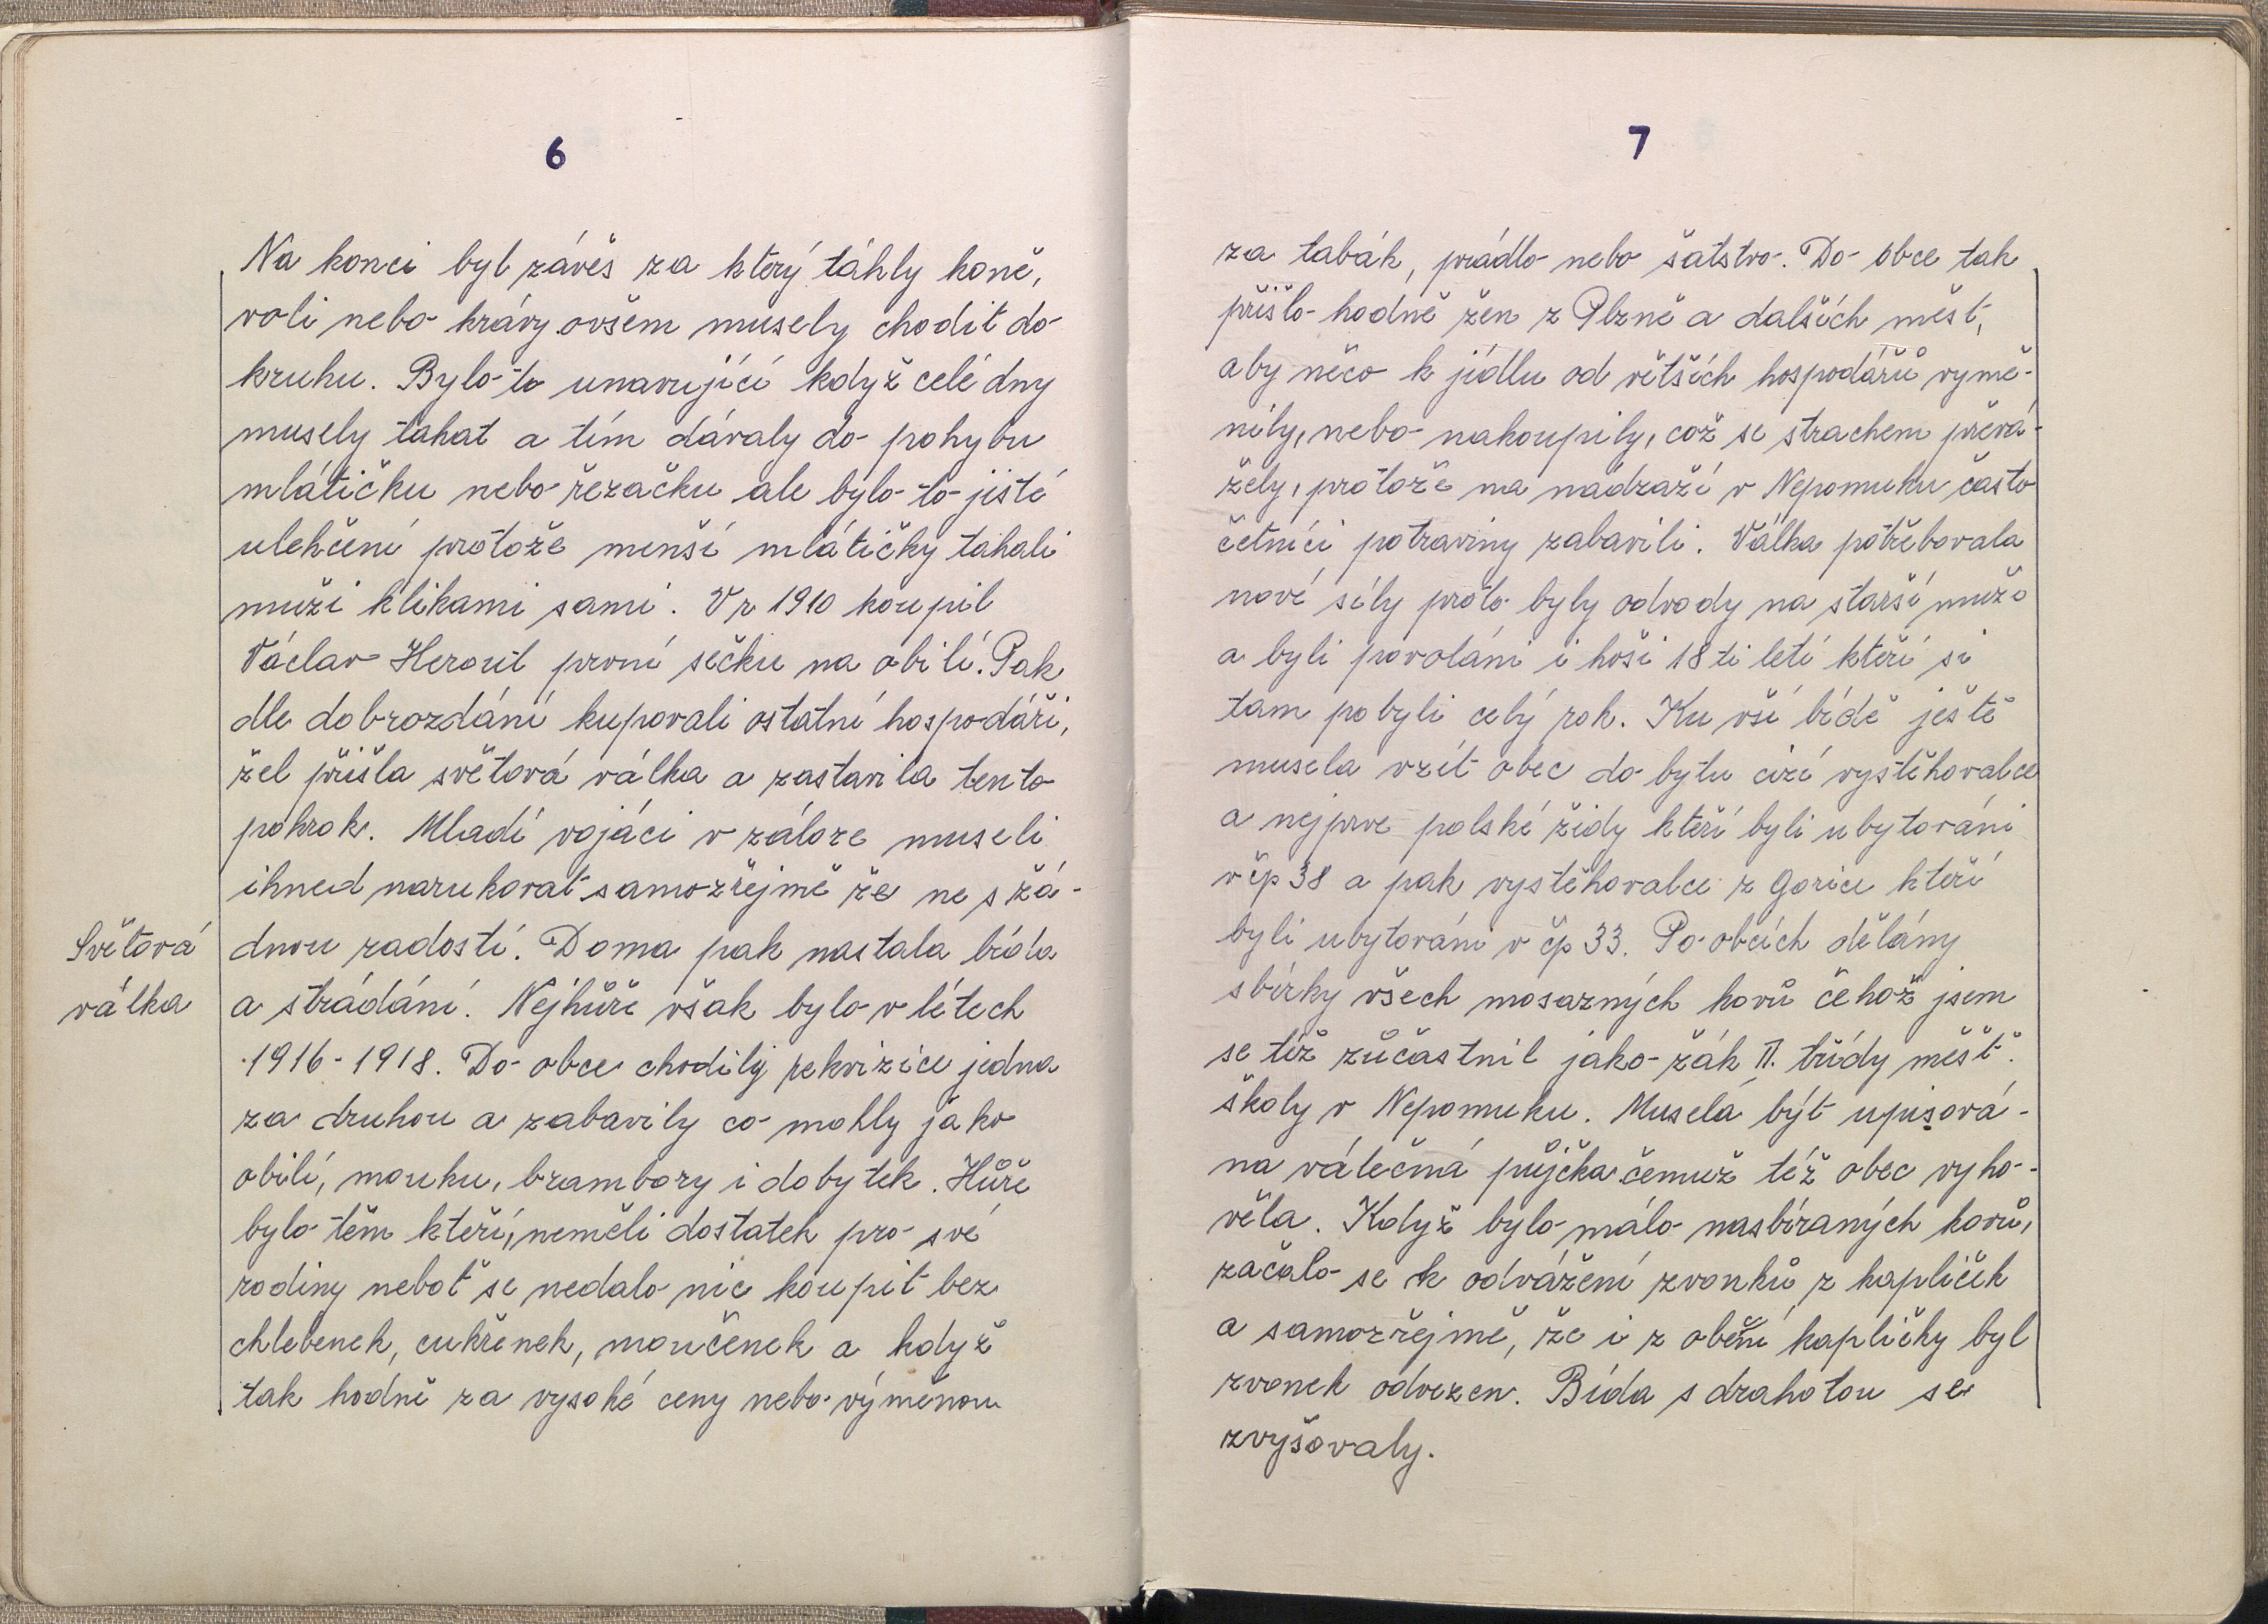 6
Na konci byl závěs za který táhly koně,
voli nebo krávy ovšem musely chodit do
kruhu. Bylo to unavující když celé dny
musely tahat a tím dávaly do pohybu
mlátičku nebo řezačku ale bylo to jisté
ulehčení protože menší mlátičky táhali
muži klikami sami. V r 1910 koupil
Václav Heroút první sečku na obilí. Pak
dle dobrozdání kupovali ostatní hospodáři,
žel přišla světová válka a zastavila tento
pokrok. Mladí vojáci v záloze museli
ihned narukovat samozřejmě že ne s žá-
Světová
válka
dnou radostí. Doma pak nastala bída
a strádání. Nejhůře však bylo v létech
1916-1918. Do obce chodily rekvizice jedna
za druhou a zabavily co mohly jako
obilí, mouku, brambory i dobytek. Hůře
bylo těm kteří, neměli dostatek pro své
rodiny neboť se nedalo nic koupit bez
chlebenek, cukřenek, moučenek a když
tak hodně za vysoké ceny nebo výměnou
7
za tabák, prádlo nebo šatstvo. Do obce tak
přišlo hodně žen z Plzně a dalších měst,
aby něco k jídlu od větších hospodářů vymě-
nily, nebo nakoupily, což se strachem převá-
žely, protože na nádraží v Nepomuku často
četníci potraviny zabavili. Válka potřebovala
nové síly proto byly odvody na starší muže
a byli povoláni i hoši 18 ti letí kteří si
tam pobyli celý rok. Ku vší bídě ještě
musela vzít obec do bytu cizí vystěhovalce
a nejprve polské židy kteří byli ubytováni
v čp 38 a pak vystěhovalce z Gorice kteří
byli ubytováni v čp 33. Po obcích dělány
sbírky všech mosazných kovů čehož jsem
se též zůčastnil jako žák II. třídy měšť.
školy v Nepomuku. Musela být upisová-
na válečná půjčka čemuž též obec vyho-
věla. Když bylo málo nasbíraných kovů,
začalo se k odvážení zvonků z kapliček
a samozřejmě, že i z obení kapličky byl
zvonek odvezen. Bída s drahotou se
zvyšovaly.